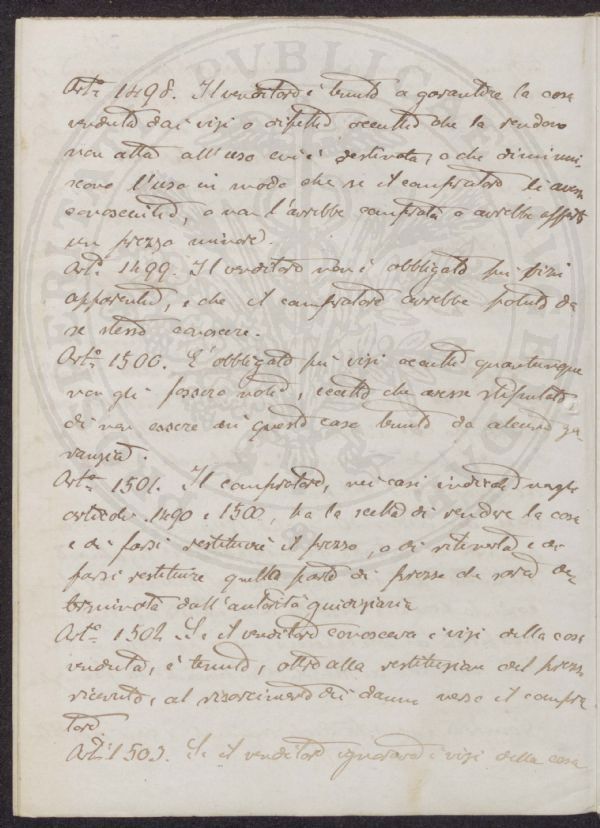 Art.º 1498. Il venditore è tenuto a garantire la cosa
venduta dai vizi o difetti occulti che la rendono
non atta all'uso cui è destinata, o che diminui-
scono l'uso in modo che se il compratore li avesse
conosciuti, o non l'avrebbe comprata o avrebbe offerto
un prezzo minore.
Art.º 1499. Il venditore non è obbligato pei vizi
apparenti, e che il compratore avrebbe potuto da
se stesso conoscere.
Art.º 1500. E' obbligato pei vizi occulti quantunque
non gli fossero noti, eccetto che avesse stipulato
di non essere in questo caso tenuto da alcuna ga
ranzia.
Art.º 1501. Il compratore, nei casi indicati negli
articoli 1490 e 1500, ha la scelta di rendere la cosa
e di farsi restituire il prezzo, o di ritenerla e di
farsi restituire quella parte di prezzo che sarà de
terminata dall'autorità giudiziaria
Art.º 1502 Se il venditore conosceva i vizi della cosa
venduta, è tenuto, oltre alla restituzione del prezzo
ricevuto, al risarcimento dei danni verso il compra
tore.
Art.º 1503. Se il venditore ignorava i vizi della cosa
PVBLICA